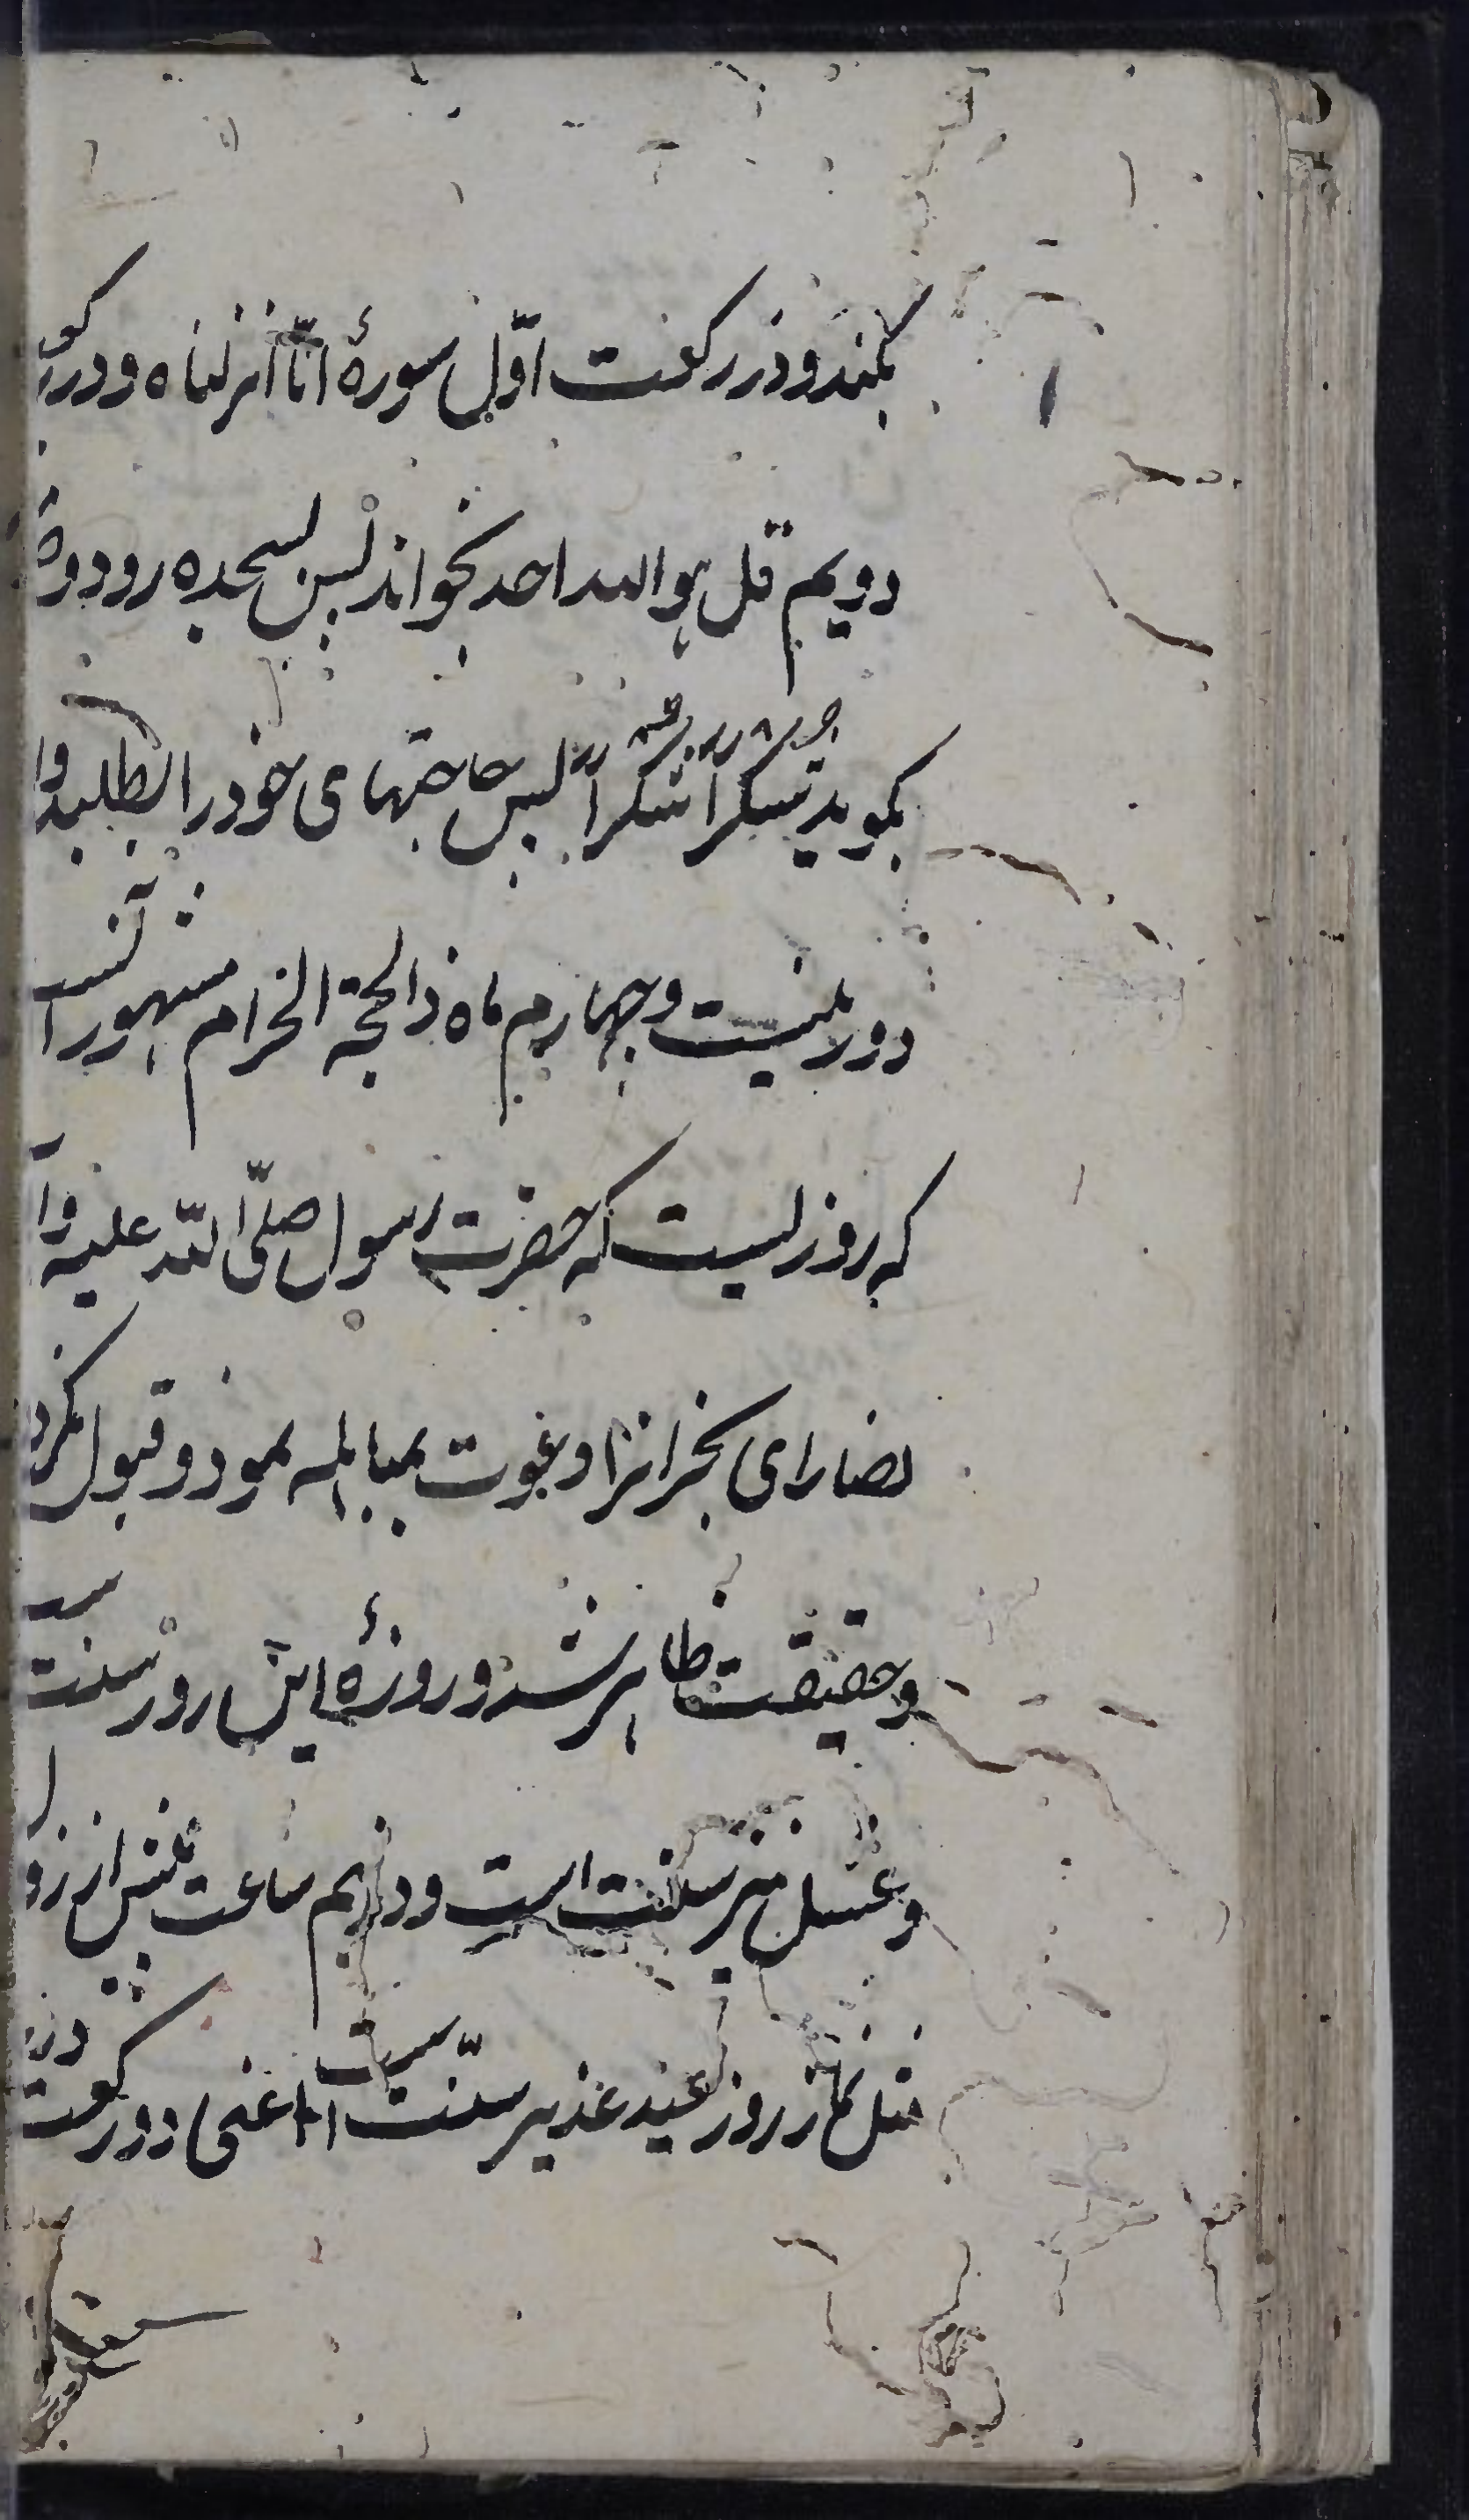 بکند و در رکعت اوّل سورهٔ انّا انزلناه و در رکعت
دویم قل هو الله احد بخواند پس بسجده رود و ده
بگوید شکراً شکراً پس حاجتهای خود را بطلبد و
روز بیست و چهارم ماه ذالحجة الحرام مشهور آنست
که روزیست که حضرت رسول صلّی الله علیه و
نصارای نجرانرا دعوت بمباهله نمود و قبول نکردند
و حقیقت ظاهر شد و روزهٔ این روز سنت
و غسل نیز سنت است و در نیم ساعت پیش از زوال
مثل نماز روز عید غدیر سنّت است اعنی دو رکعت در